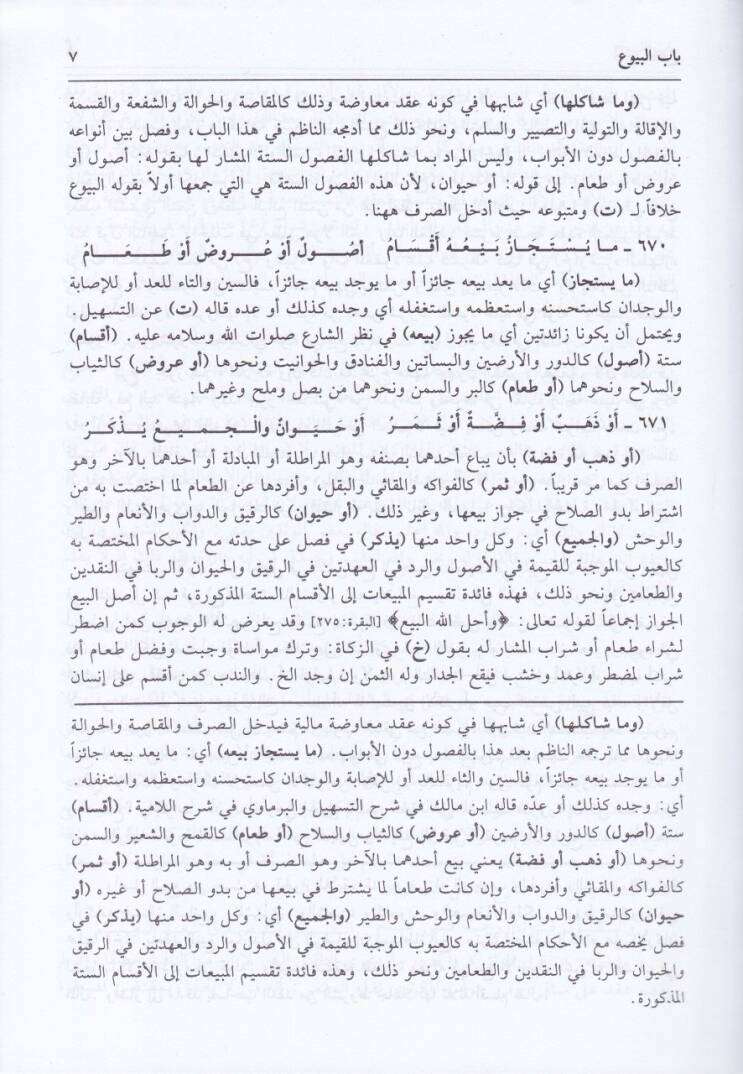 باب البيوع ٧
(وما شاكلها) أي شابهها في كونه عقد معاوضة وذلك كالمقاصة والحوالة والشفعة والقسمة
والإقالة والتولية والتصيير والسلم، ونحو ذلك مما أدمجه الناظم في هذا الباب، وفصل بين أنواعه
بالفصول دون الأبواب، وليس المراد بما شاكلها الفصول الستة المشار لها بقوله: أصول أو
عروض أو طعام. إلى قوله: أو حيوان، لأن هذه الفصول الستة هي التي جمعها أولاً بقوله البيوع
خلافاً لـ (ت) ومتبوعه حيث أدخل الصرف ههنا.
٦٧٠ - مـا يُـسْـتَـجَـازُ بَـيْـعُـهُ أَقْـسَـامُ أصُـولٌ أَوْ عُـروضٌ أَوْ طَـعَـــامُ
(ما يستجاز) أي ما يعد بيعه جائزاً أو ما يوجد بيعه جائزاً، فالسين والتاء للعد أو للإصابة
والوجدان كاستحسنه واستعظمه واستغفله أي وجده كذلك أو عده قاله (ت) عن التسهيل.
ويحتمل أن يكونا زائدتين أي ما يجوز (بيعه) في نظر الشارع صلوات الله وسلامه عليه. (أقسام)
ستة (أصول) كالدور والأرضين والبساتين والفنادق والحوانيت ونحوها (أو عروض) كالثياب
والسلاح ونحوهما (أو طعام) كالبر والسمن ونحوهما من بصل وملح وغيرهما.
٦٧١ - أَوْ ذَهَـبٌ أَوْ فِـضَّـةٌ أَوْ ثَـمَـرُ أَوْ حَـيَـوانٌ والْـجَـمـيـعُ يُـذْكَـرُ
(أو ذهب أو فضة) بأن يباع أحدهما بصنفه وهو المراطلة أو المبادلة أو أحدهما بالآخر وهو
الصرف كما مر قريباً. (أو ثمر) كالفواكه والمقاثي والبقل، وأفردها عن الطعام لما اختصت به من
اشتراط بدو الصلاح في جواز بيعها، وغير ذلك. (أو حيوان) كالرقيق والدواب والأنعام والطير
والوحش (والجميع) أي: وكل واحد منها (يذكر) في فصل على حدته مع الأحكام المختصة به
كالعيوب الموجبة للقيمة في الأصول والرد في العهدتين في الرقيق والحيوان والربا في النقدين
والطعامين ونحو ذلك، فهذه فائدة تقسيم المبيعات إلى الأقسام الستة المذكورة، ثم إن أصل البيع
الجواز إجماعاً لقوله تعالى: ﴿وأحل الله البيع﴾ [البقرة: ٢٧٥] وقد يعرض له الوجوب كمن اضطر
لشراء طعام أو شراب المشار له بقول (خ) في الزكاة: وترك مواساة وجبت وفضل طعام أو
شراب لمضطر وعمد وخشب فيقع الجدار وله الثمن إن وجد الخ. والندب كمن أقسم على إنسان
(وما شاكلها) أي شابهها في كونه عقد معاوضة مالية فيدخل الصرف والمقاصة والحوالة
ونحوها مما ترجمه الناظم بعد هذا بالفصول دون الأبواب. (ما يستجاز بيعه) أي: ما يعد بيعه جائزاً
أو ما يوجد بيعه جائزاً، فالسين والثاء للعد أو للإصابة والوجدان كاستحسنه واستعظمه واستغفله.
أي: وجده كذلك أو عدّه قاله ابن مالك في شرح التسهيل والبرماوي في شرح اللامية. (أقسام)
ستة (أصول) كالدور والأرضين (أو عروض) كالثياب والسلاح (أو طعام) كالقمح والشعير والسمن
ونحوها (أو ذهب أو فضة) يعني بيع أحدهما بالآخر وهو الصرف أو به وهو المراطلة (أو ثمر)
كالفواكه والمقاثي وأفردها، وإن كانت طعاماً لما يشترط في بيعها من بدو الصلاح أو غيره (أو
حيوان) كالرقيق والدواب والأنعام والوحش والطير (والجميع) أي: وكل واحد منها (يذكر) في
فصل يخصه مع الأحكام المختصة به كالعيوب الموجبة للقيمة في الأصول والرد والعهدتين في الرقيق
والحيوان والربا في النقدين والطعامين ونحو ذلك، وهذه فائدة تقسيم المبيعات إلى الأقسام الستة
المذكورة.